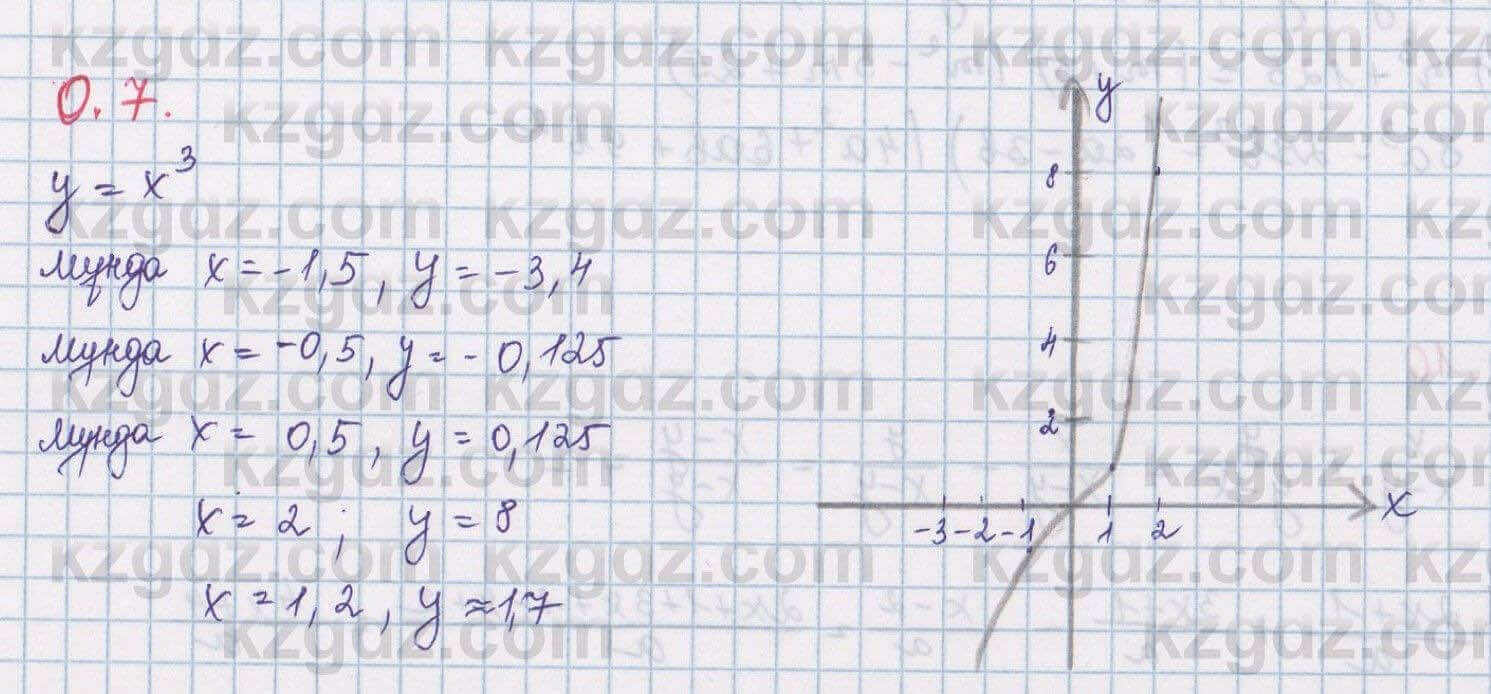 0.7.
y = x³
мұнда x = -1,5, y = -3,4
мұнда x = -0,5, y = - 0,125
мұнда x = 0,5, y = 0,125
x = 2 ; y = 8
x = 1,2, y ≈ 1,7
y
8
6
4
2
-3 -2 -1 1 2 x
kzgdz.com